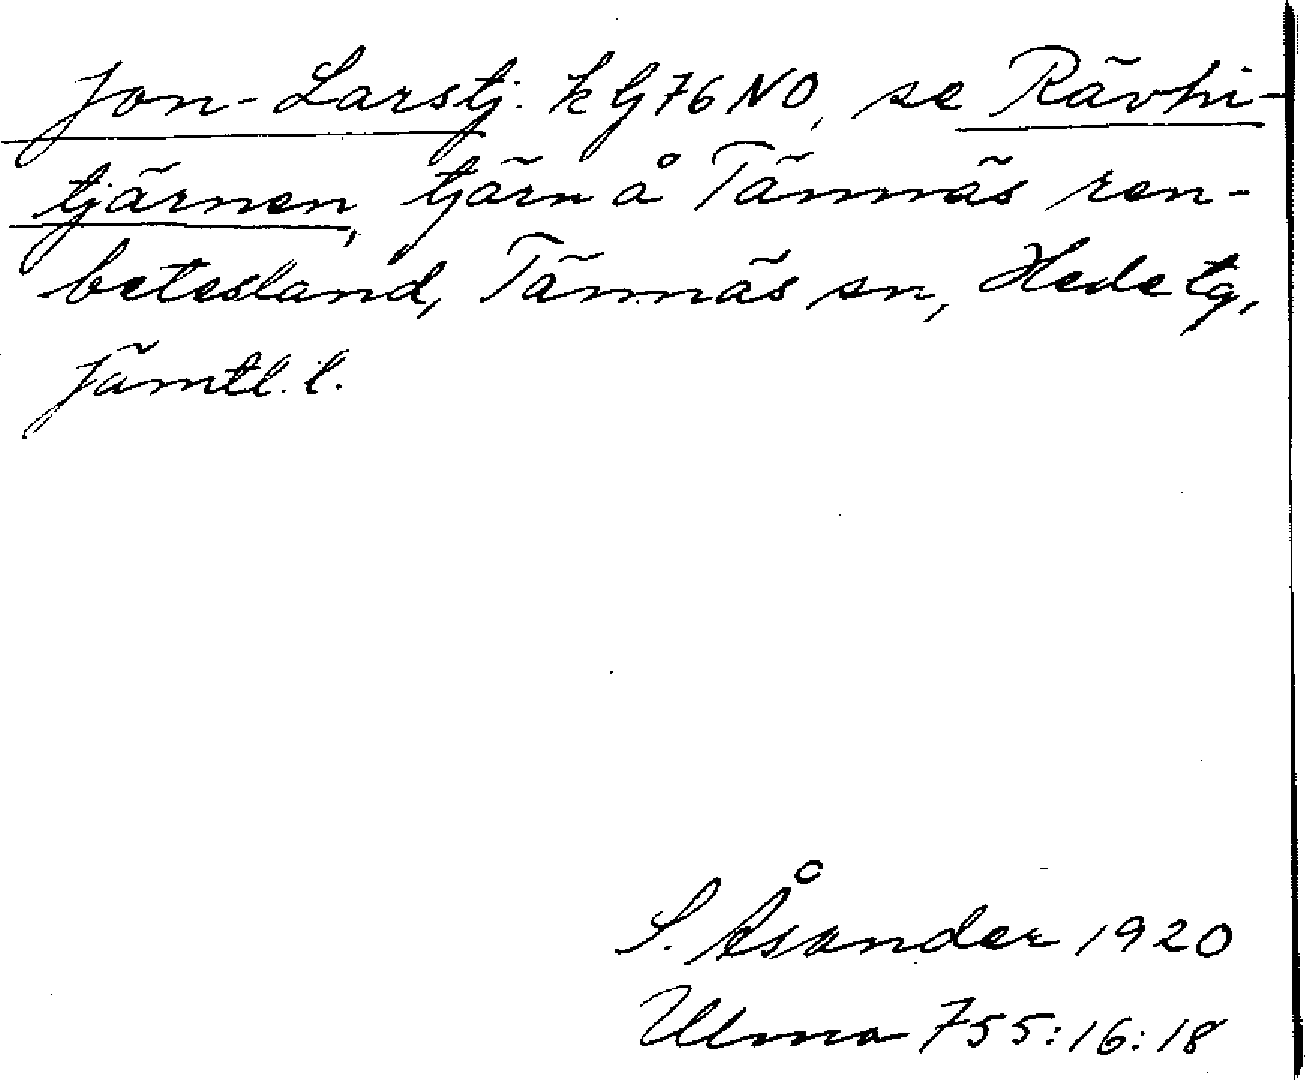 Jon-Larstj. k G76 NO, se Rävhi-
tjärnen, tjärn å Tännäs ren-
betesland, Tännäs sn, Hede tg,
Jämtl. l.
S. Åsander 1920
Ulma 755:16:18